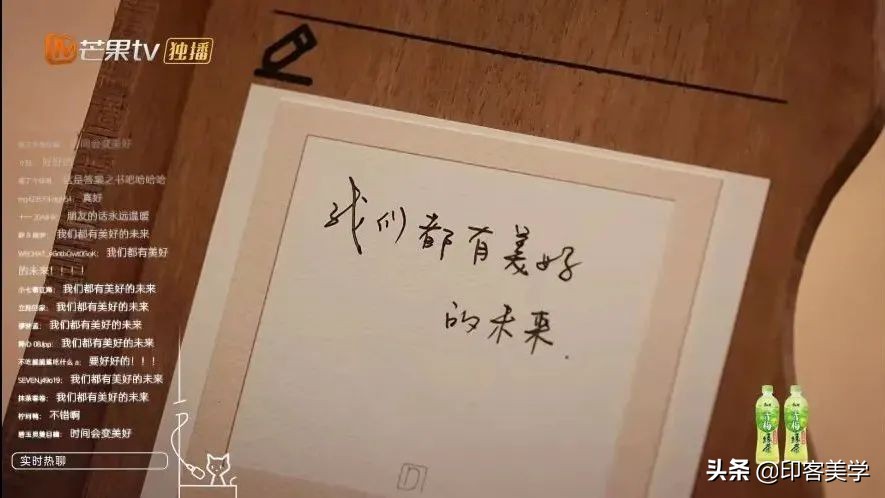 芒果tv 独播
我们都有美好
的未来.
时间会变美好
这是答案之书吧哈哈哈
真好
朋友的话永远温暖
我们都有美好的未来
我们都有美好
的未来！！！！
我们都有美好的未来
我们都有美好的未来
我们都有美好的未来
我们都有美好的未来
要好好的！！！
SEVENj49o19： 我们都有美好的未来
抹茶春卷： 我们都有美好的未来
不错啊
时间会变美好
实时热聊
头条 @印客美学